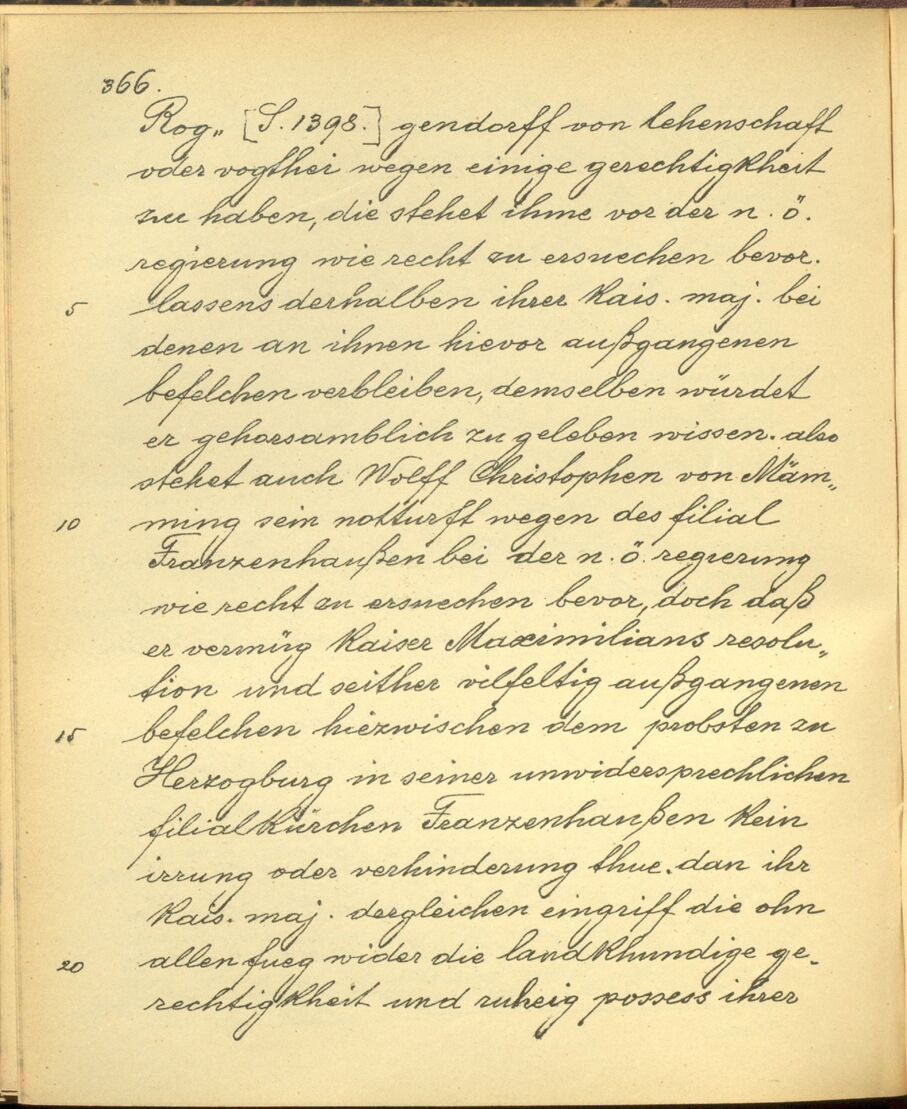 366.
Rog„ [S. 1398.] gendorff von lehenschaft
oder vogthei wegen einige gerechtigkheit
zu haben, die stehet ihme vor der n. ö.
regierung wie recht zu ersuechen bevor.
5 lassens derhalben ihrer kais. maj. bei
denen an ihnen hievor außgangenen
befelchen verbleiben, demselben würdet
er gehorsamblich zu geleben wissen. also
stehet auch Wolff Christophen von Mäm„
10 ming sein notturft wegen des filial
Franzenhaußen bei der n. ö. regierung
wie recht zu ersuechen bevor, doch daß
er vermüg kaiser Maximilians resolu„
tion und seither vilfeltig außgangenen
15 befelchen hiezwischen dem probsten zu
Herzogburg in seiner unwidersprechlichen
filialkürchen Franzenhaußen kein
irrung oder verhinderung thue. dan ihr
kais. maj. dergleichen eingriff die ohn
20 allen fueg wider die landkhundige ge-
rechtigkheit und ruheig possess ihrer